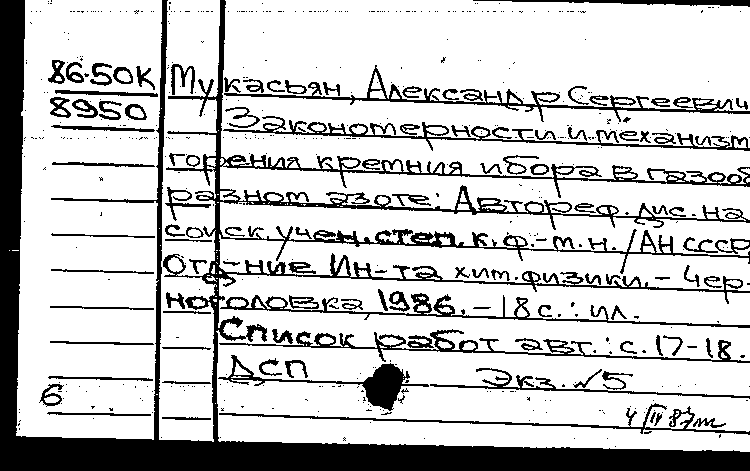 86-50К Мукасьян, Александр Сергеевич
8950 Закономерности и механизм
горения кремния и бора в газооб
разном азоте: Автореф. дис. на
соиск. учен. степ. к. ф.-м. н. / АН СССР,
Отд-ние Ин-та хим. физики. - Чер-
ноголовка, 1986. - 18 с. : ил.
Список работ авт.: с. 17-18.
ДСП Экз. №5
6
4 III 87